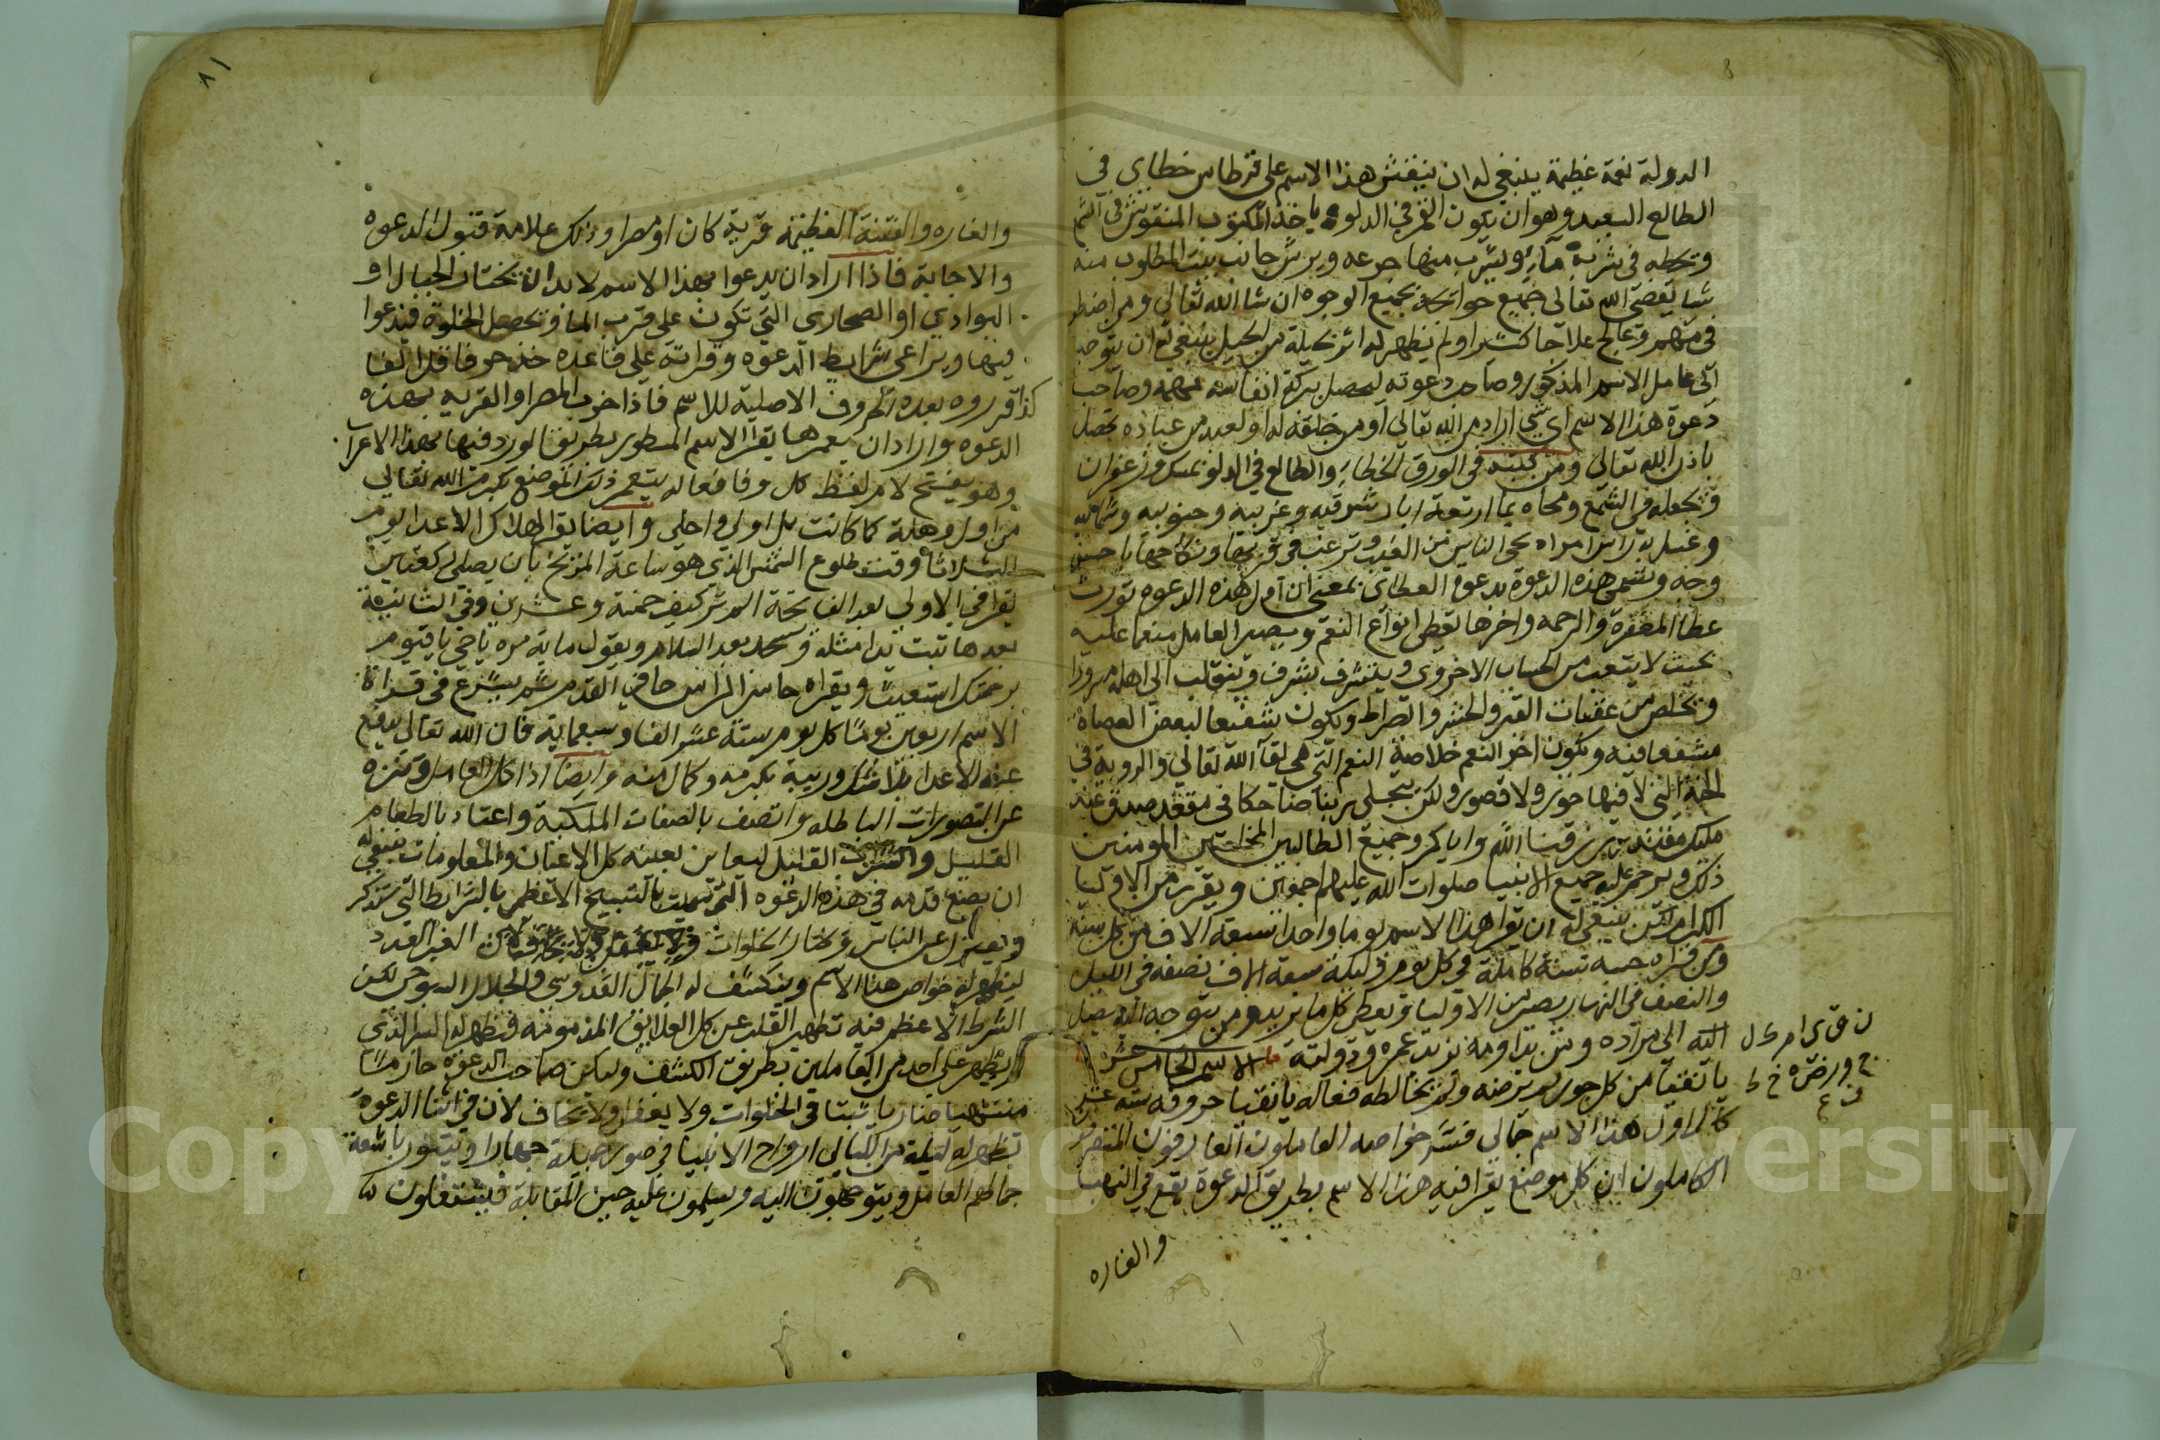 الدولة نعمة عظيمة ينبغي له ان ينقش هذا الاسم على قرطاس خطاي في
الطالع السعيد وهو ان يكون القمر في الدلو ياخذ المكتوب المنقوش في الشمع
ويحطه في شربة ماء ويشرب منها جرعه ويرش جانب بيت المطلوب منه
شيا يقضى الله تعالى جميع حوائجه بجميع الوجوه ان شا الله تعالى ومن اضطر
في مهم وعالج علاجا كثيرا ولم يظهر له اثر بحيلة من الحيل ينبغي له ان يتوجه
الى عامل الاسم المذكور وصاحب دعوته ليحصل ببركة انفاسه مهمه وصاحب
دعوة هذا الاسم اي شي اراد من الله تعالى او من خلقه له او لعبد من عباده تحصل
باذن الله تعالى ومن كتبه في الورق الخطاي والطالع في الدلو بمسك وزعفران
ويجعله في الشمع ومحاه بما اربعة ابار شرقيه وغربيه وجنوبيه وشماليه
وغسل به راس امراه يجي الناس من الغيب وترغب في تزويجها ونكاحها باحسن
وجه وتسمى هذه الدعوة بدعوة العطاي بمعنى ان اول هذه الدعوه تورث
عطا المغفرة والرحمه واخرها يعطى انواع النعم ويصير العامل منعما عليه
بحيث لا يتعب من الحساب الاخروى ويتشرف بشرف وينقلب الى اهله مسرورا
ويخلص من عقبات القبر والحشر والصراط ويكون شفيعا لبعض العصاه
مشفعا فيه ويكون اخر النعم خلاصة النعم التي هي لقا الله تعالى والروية في
الجنة التي لا فيها حور ولا قصور ولكن يتجلى ربنا ضاحكا في مقعد صدق عند
مليك مقتدر رزقنا الله واياكم وجميع الطالبين المخلصين المومنين
ذلك وبرحم عليه جميع الانبيا صلوات الله عليهم اجمعين ويقرر من الاوليا
الكرام لكن ينبغي له ان يقرا هذا الاسم يوما واحدا سبعة الاف من كل سنة
ومن قراه خمسه سنة كاملة في كل يوم وليلة سبعة الاف نصفه في الليل
والنصف في النهار يصير من الاوليا ويعطى كل ما يريد ومن يتوجه اليه يصل
اليه الى مراده ومن يداومه يزيد عمره ودولته الاسم الخامس عشر
يا نقيا من كل جور لم يرضه ولم يخالطه فعاله يا نقيا حروفه ستة عشر
كالاول هذا الاسم جمالى فسر خواصه العاملون العارفون
الكاملون ان كل موضع يقرا فيه هذا الاسم بطريق الدعوة يقع في النهب
والغاره
ن ق ى ا م ك ل
ج و ر ض ه خ ط
ف ع
٨١
والغاره والفتنة العظيمة قرية كان او مصرا وذلك علامة قبول الدعوه
والاجابة فاذا اراد ان يدعوا بهذا الاسم لا بد ان يختار الجبال او
البوادي او الصحاري التي تكون على قرب الما ويحصل الخلوة فيدعوا
فيها ويراعى شرايط الدعوه وقراته على قاعده خذ حرفا قل الفا
كذا قرروه بعده الحروف الاصلية للاسم فاذا خرب المصر او القرية بهذه
الدعوه واراد ان يعمرها يقرا الاسم المسطور بطريق الورد فيها بهذا الاعراب
وهو يفتح لام لفظ كل وفا فعاله يتعمر ذلك الموضع بكرم الله تعالى
من اول وهلة كما كانت بل اولى واحلى وايضا يقرا لهلاك الاعدا يوم
الثلاثا وقت طلوع الشمس الذي هو ساعة المريخ بان يصلى ركعتين
يقرا في الاولى بعد الفاتحة الم تر كيف خمسة وعشرين وفي الثانية
بعدها تبت يدا مثله ويسجد بعد السلام ويقول ماية مره يا حي يا قيوم
برحمتك استغيث ويقراه حاسر الراس حافي القدم ثم يشرع في قراة
الاسم اربعين يوما كل يوم ستة عشر الفا وسبعماية فان الله تعالى يدفع
عنه الاعدا بلا شك وريبة بكرمه وكمال منه وايضا اذا كان العامل وتنزه
عن التصورات الباطله واتصف بالصفات الملكية واعتاد بالطعام
القليل والشرب القليل ليعاين بعينه كل الاعيان والمعلومات ينبغي له
ان يضع قدمه في هذه الدعوه التي تمت بالتسبيح الاعظم بالشرايط التي ستذكر
ويعتزل عن الناس ويختار الخلوات
ليظهر له خواص هذا الاسم وينكشف له الجمال القدوسى والجلال السبوحى لكن
الشرط الاعظم فيه تطهير القلب عن كل العلايق المذمومه فيظهر له السر الذي
لم يظهر على احد من العاملين بطريق الكشف وليكن صاحب الدعوه حازما
منتبها صابرا ثبتا في الخلوات ولا يغفل ولا يخاف لان في اثنا الدعوة
تظهر له ليلة من الليالى ارواح الانبيا في صور جميلة جهارا ويتنور باشعة
جمالهم العامل ويتوجهون اليه ويسلمون عليه حين المقابلة فيشتغلون